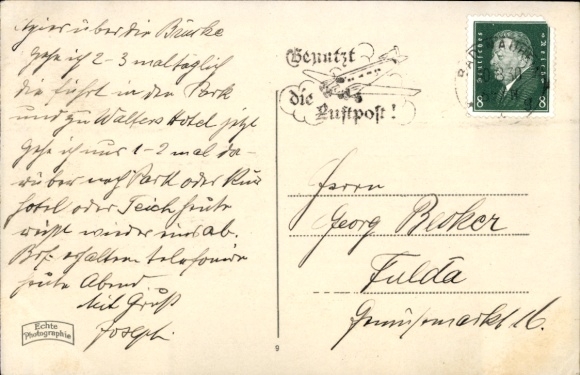 hier über die Brücke
gehe ich 2-3 mal täglich
die führt in den Park
und zu Walters Hotel jetzt
gehe ich nur 1-2 mal da-
rüber nach Park oder Kur
hotel oder Teich heute
wieder
Brf. erhalten telefoniere
heute Abend
Mit Gruß
Joseph
Echte
Photographie
9
Benutzt
die
Luftpost!
BAD NAUHEIM
Deutsches Reich
8 8
Herrn
Georg Becker
Fulda
Gemüsemarkt 16.